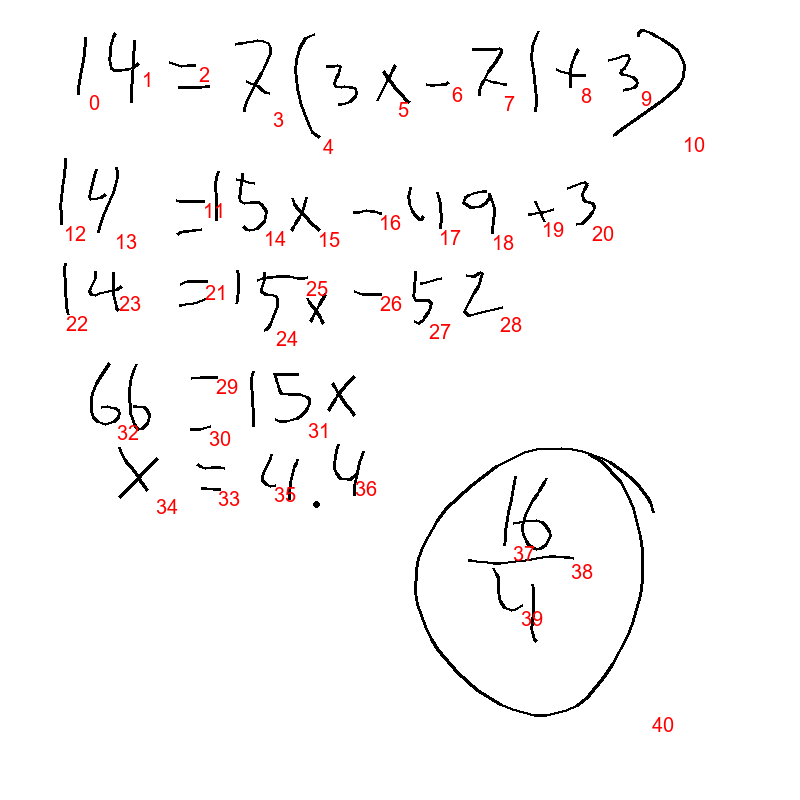 14 = 7(3x - 71 + 3)
0 1 2 3 4 5 6 7 8 9 10
14 = 15x - 49 + 3
12 13 11 14 15 16 17 18 19 20
14 = 15x - 52
22 23 21 24 25 26 27 28
66 = 15x
32 29 30 31
x = 4.4
34 33 35 36
16
37
38
4
39
40